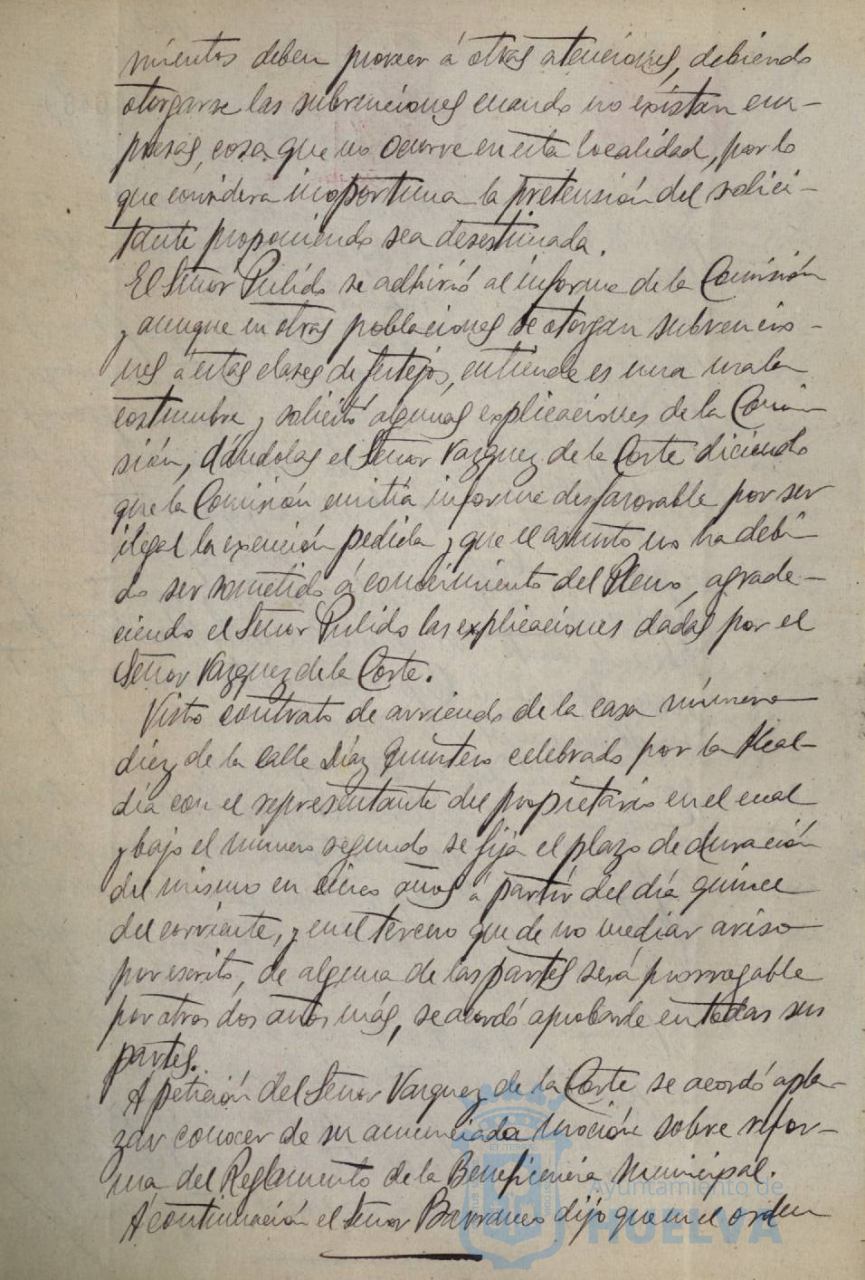 mientos deben proveer á otras atenciones, debiendo
otorgarse las subvenciones cuando no existan em-
presas, cosa que no ocurre en esta localidad, por lo
que considera inoportuna la pretensión del solici-
tante proponiendo sea desestimada.
El Señor Pulido se adhirió al informe de la Comisión
y aunque en otras poblaciones se otorgan subvencio-
nes á estas clases de festejos, entiende es una mala
costumbre y solicitó algunas explicaciones de la Comi-
sión, dándolas el Señor Vazquez de la Corte diciendo
que la Comisión emitía informe desfavorable por ser
ilegal la exención pedida y que el asunto no ha debi-
do ser sometido á conocimiento del Pleno, agrade-
ciendo el Señor Pulido las explicaciones dadas por el
Señor Vazquez de la Corte.
Visto contrato de arriendo de la casa número
diez de la calle Díaz Quintero celebrado por la Alcal-
día con el representante del propietario en el cual
y bajo el número segundo se fija el plazo de duración
del mismo en cinco años á partir del día quince
del corriente, y en el tercero que de no mediar aviso
por escrito, de alguna de las partes será prorrogable
por otros dos años más, se acordó aprobarle en todas sus
partes.
A petición del Señor Vazquez de la Corte se acordó apla-
zar conocer de su anunciada moción sobre refor-
ma del Reglamento de la Beneficencia Municipal.
A continuación el Señor Barranco dijo que en el orden
Ayuntamiento de
HUELVA